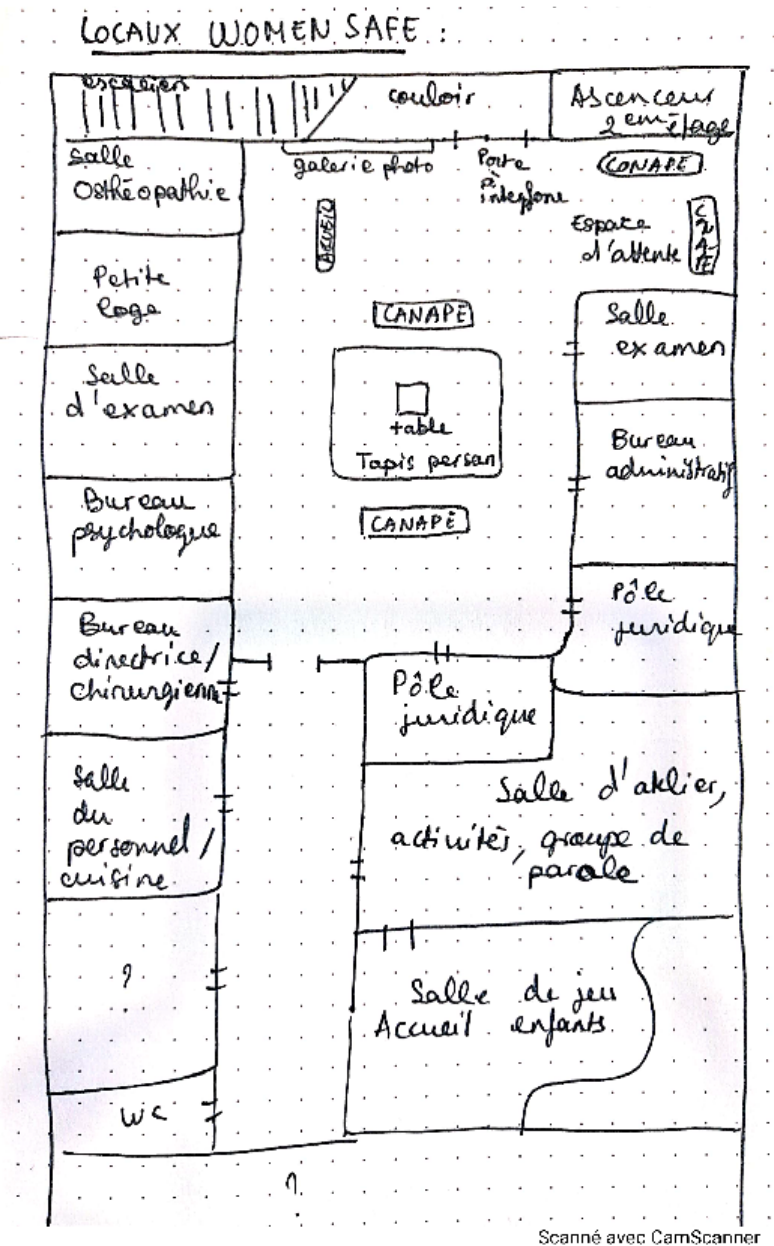 LOCAUX WOMEN SAFE :
escaliers
couloir
Ascenceur
2em étage
Salle
Osthéopathie
galerie photo
Porte
à
intephone
CANAPE
ACCUEIL
Espace
d'attente
CANAPE
Petite
loge
CANAPE
Salle
examen
Salle
d'examen
table
Tapis persan
Bureau
administratif
Bureau
psychologue
CANAPÉ
Pôle
juridique
Bureau
directrice/
chirurgienne
Pôle
juridique
Salle
du
personnel /
cuisine
Salle d'atelier,
activités, groupe de
parole
?
Salle de jeu
Accueil enfants
WC
?
Scanné avec CamScanner